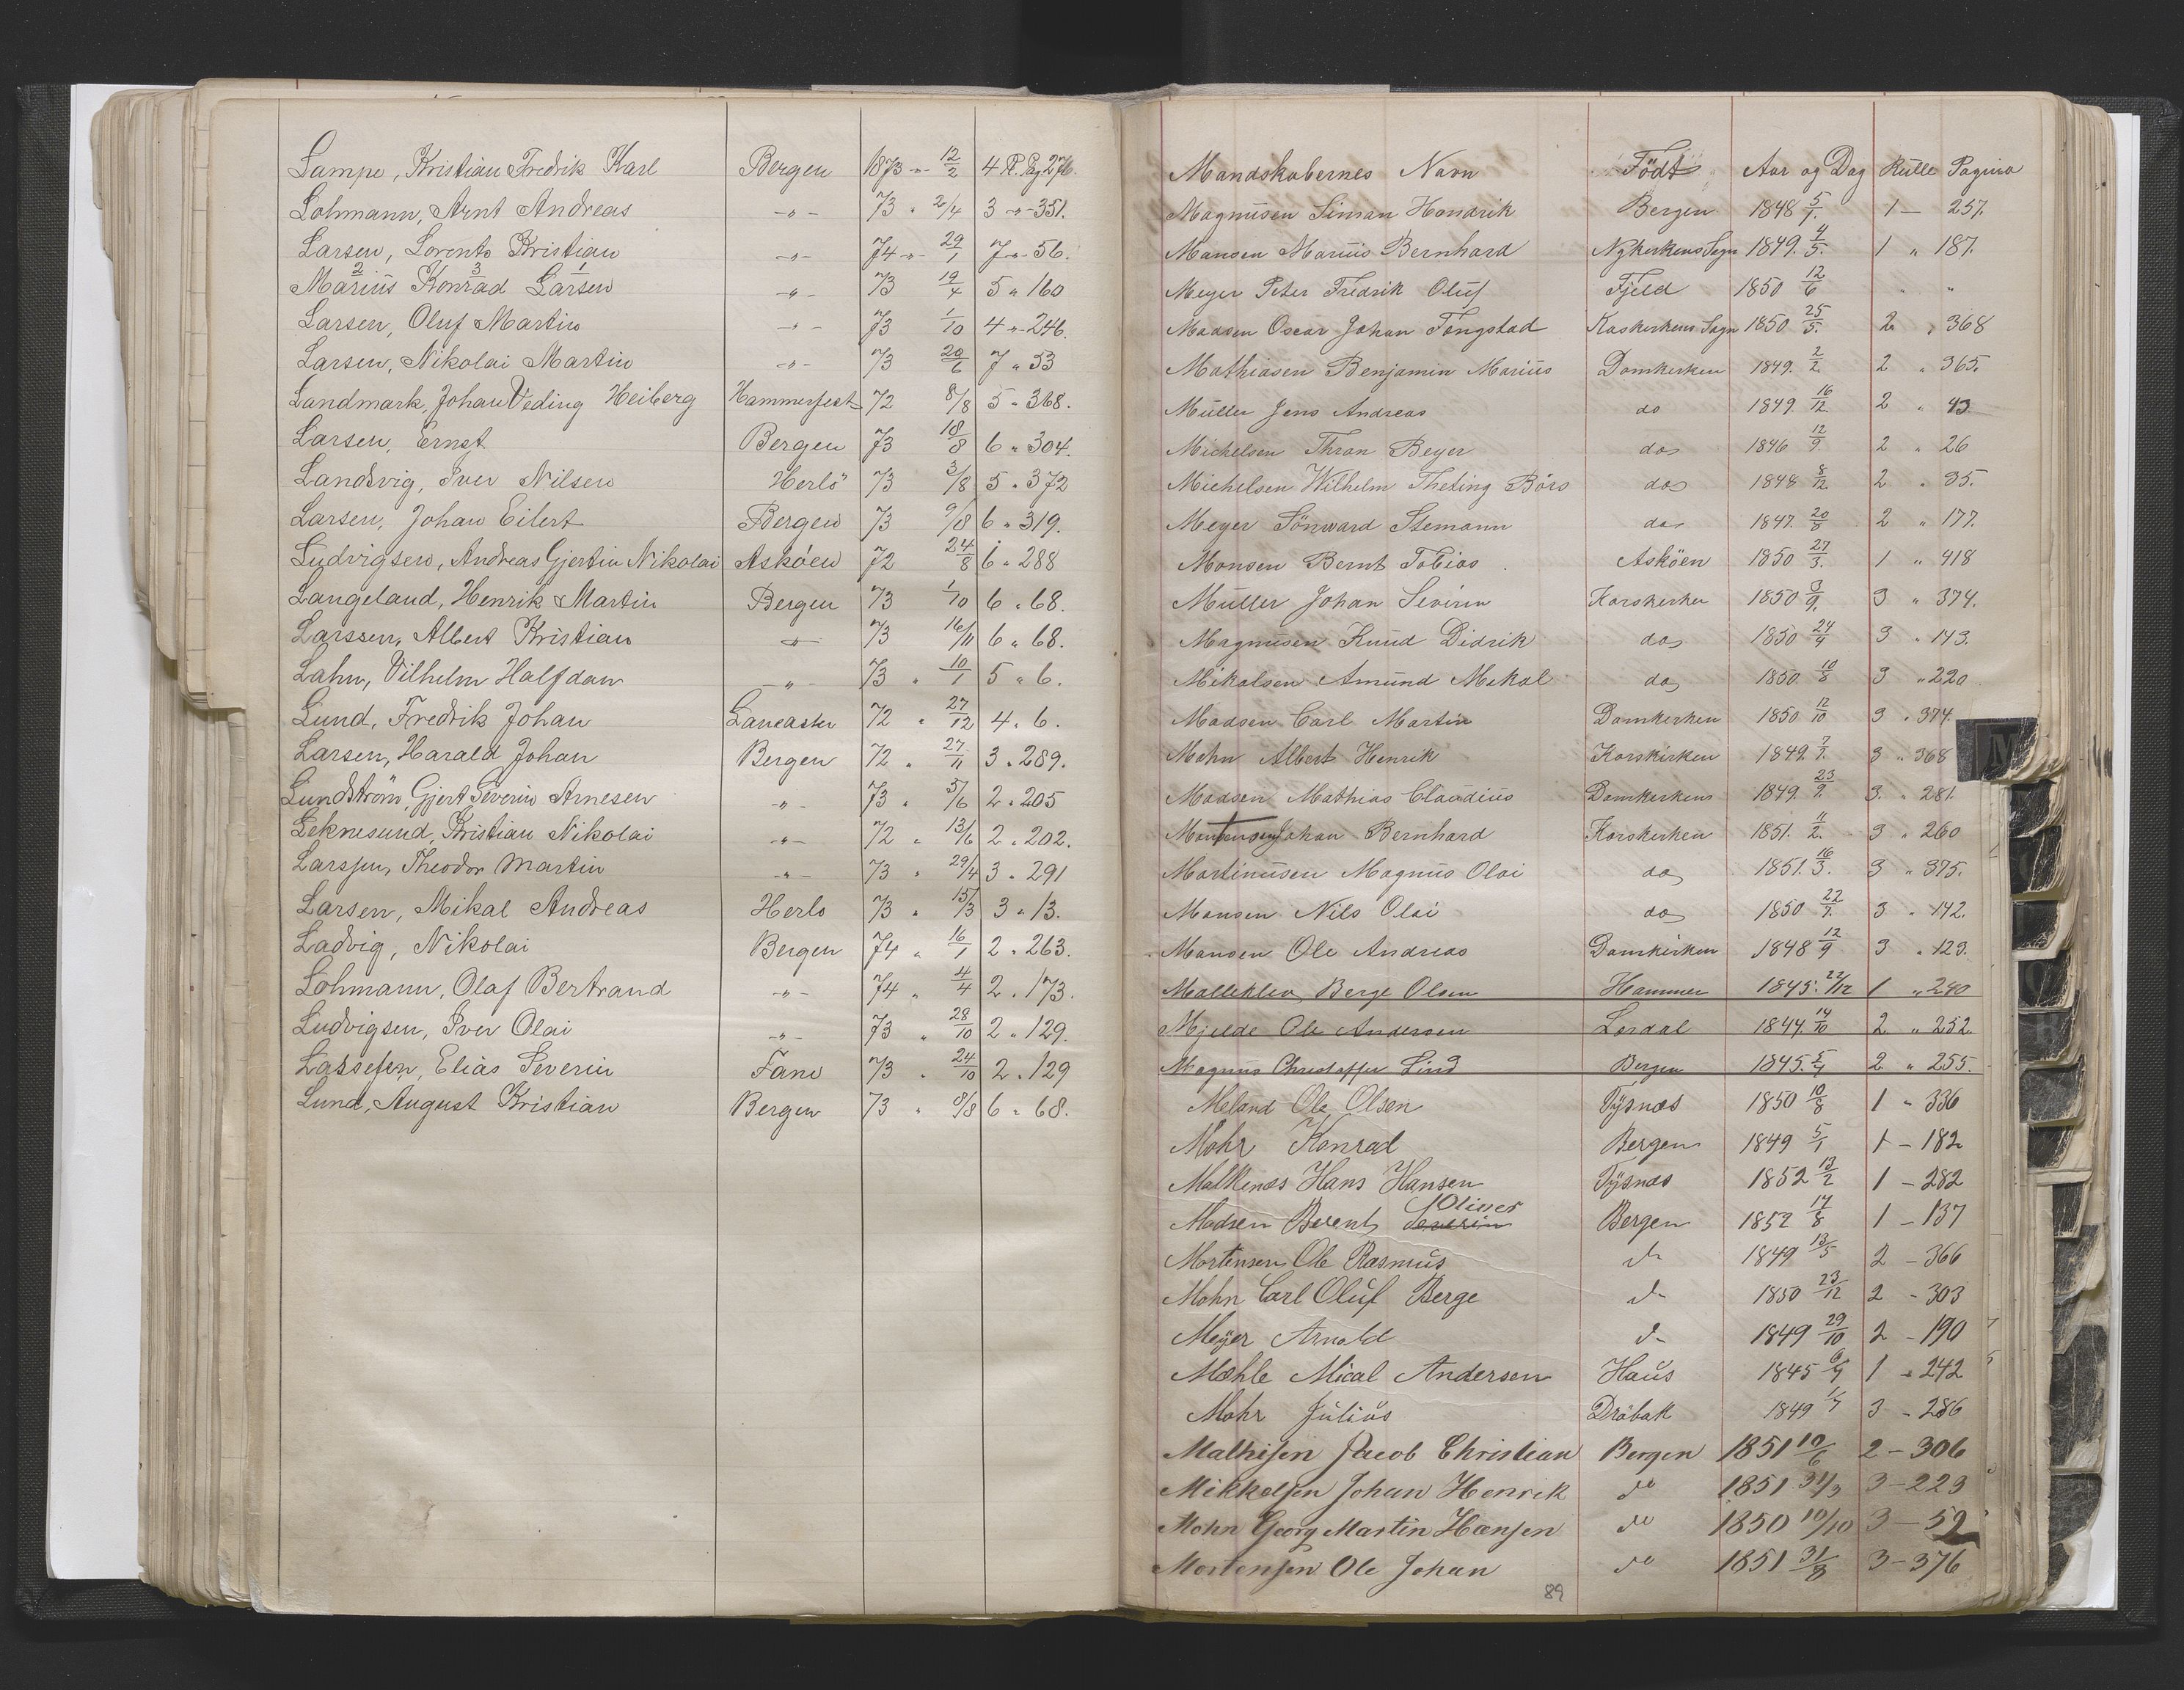 Lampe, Kristian Fredrik Karl Bergen 1873 -"- 12/2 4 R. Pag 276.
Lohmann, Arnt Andreas -"- 73 " 2/4 3 -"- 351.
Larsen, Lorentz Kristian -"- 74 -"- 29/1 7 -"- 56.
2 3 1
Marius Konrad Larsen -"- 73 19/4 5 " 160
Larsen, Oluf Martin -"- 73 1/10 4 -"- 246.
Larsen, Nikolai Martin -"- 73 20/6 7 " 53
Landmark, Johan Veding Heiberg Hammerfest 72 8/8 5 " 368.
Larsen, Ernst Bergen 73 18/8 6 " 304.
Landsvig, Iver Nilsen Herlö 73 3/8 5 " 372
Larsen, Johan Eilert Bergen 73 9/8 6 " 319.
Ludvigsen, Andreas Gjertin Nikolai Asköen 72 24/8 6 " 288
Langeland, Henrik Martin Bergen 73 1/10 6 " 68.
Larssen, Albert Kristian -"- 73 16/11 6 " 68.
Lahn, Vilhelm Halfdan -"- 73 " 10/1 5 " 6.
Lund, Fredrik Johan Lancaster 72 " 27/12 4 " 6.
Larsen, Harald Johan Bergen 72 " 27/11 3 " 289.
Lundström, Gjert Severin Arnesen -"- 73 " 5/6 2 " 205
Leknesund, Kristian Nikolai -"- 72 " 13/6 2 " 202.
Larssen, Theodor Martin -"- 73 " 29/4 3 " 291
Larsen, Mikal Andreas Herlo 73 " 15/3 3 " 13.
Ladvig, Nikolai Bergen 74 " 16/1 2 " 263.
Lohmann, Olaf Bertrand -"- 74 " 4/4 2 " 173.
Ludvigsen, Iver Olai -"- 73 " 28/10 2 " 129.
Lassesen, Elias Severin Fane 73 " 24/10 2 " 129
Lund, August Kristian Bergen 73 " 8/8 6 " 68.
Mandskabernes Navn Födt Aar og Dag Rulle Pagina
Magnusen Siman Hendrik Bergen 1848 5/7. 1 - 257.
Mansen Marius Bernhard Nykerkens Sogn 1849. 4/5. 1 " 187.
Meyer Peter Fredrik Oluf Fjeld 1850 12/6 " "
Madsen Oscar Johan Tengstad Korskerkens Sogn 1850 25/5. 2 " 368
Mathiasen Benjamin Marius Domkerken 1849. 2/2. 2 " 365.
Müller Jens Andreas do 1849. 16/12. 2 " 43
Michelsen Thran Beyer do 1846 12/9. 2 " 26
Michelsen Wilhelm Theting Börs do 1848 8/12. 2 " 35.
Meyer Sönward Stemann do 1847. 20/8 2 " 177.
Monsen Bernt Tobias Asköen 1850 27/3. 1 " 418
Müller Johan Sivirin Korskerken 1850 3/9. 3 " 374.
Magnusen Knud Didrik do 1850 24/9 3 " 143.
Mikalsen Amund Mekal do 1850. 10/8 3 " 220
Madsen Carl Martin Domkerken 1850 12/10 3 " 374.
Mohn Albert Henrik Korskirken 1849. 7/7. 3 " 368
M
Madsen Mathias Claudius Domkerkens 1849. 23/9. 3. " 281.
Mortensen Johan Bernhard Korskerken 1851. 11/2. 3 " 260
Martinusen Magnus Olai do 1851. 16/3. 3 " 375.
Monsen Nils Olai do 1850 22/7. 3 " 142.
Monsen Ole Andreas Domkirken 1848 12/9 3 " 123.
Molleklev Berge Olsen Hammer 1845. 22/12 1 " 240
Mjelde Ole Andersen Lerdal 1844. 14/10 2 " 252.
Magnus Christoffer Lind Bergen 1845. 5/4 2 " 255.
Meland Ole Olsen Tysnæs 1850 10/8 1 " 336
Mohr Konrad Bergen 1849 5/1 1 - 182
Malkenæs Hans Hansen Tysnæs 1852 13/2 1 - 282
Oliver
Madsen Berent Severin Bergen 1852 14/8 1 - 137
Mortensen Ole Rasmus do 1849 13/5 2 - 366
Mohn Carl Oluf Berge do 1850 23/12 2 - 303
Meyer Arnold do 1849 29/10 2 - 190
Mæhle Mical Andersen Haus 1845 6/9 1 - 242
Mohr Julius Dröbak 1849 1/7 3 - 286
Mathisen Jacob Christian Bergen 1851 10/6 2 - 306
Mikkelsen Johan Henrik do 1851 31/3 3 - 229
Mohn Georg Martin Hansen do 1850 10/10 3 - 52
Mortensen Ole Johan do 1851 31/8 3 - 376
89